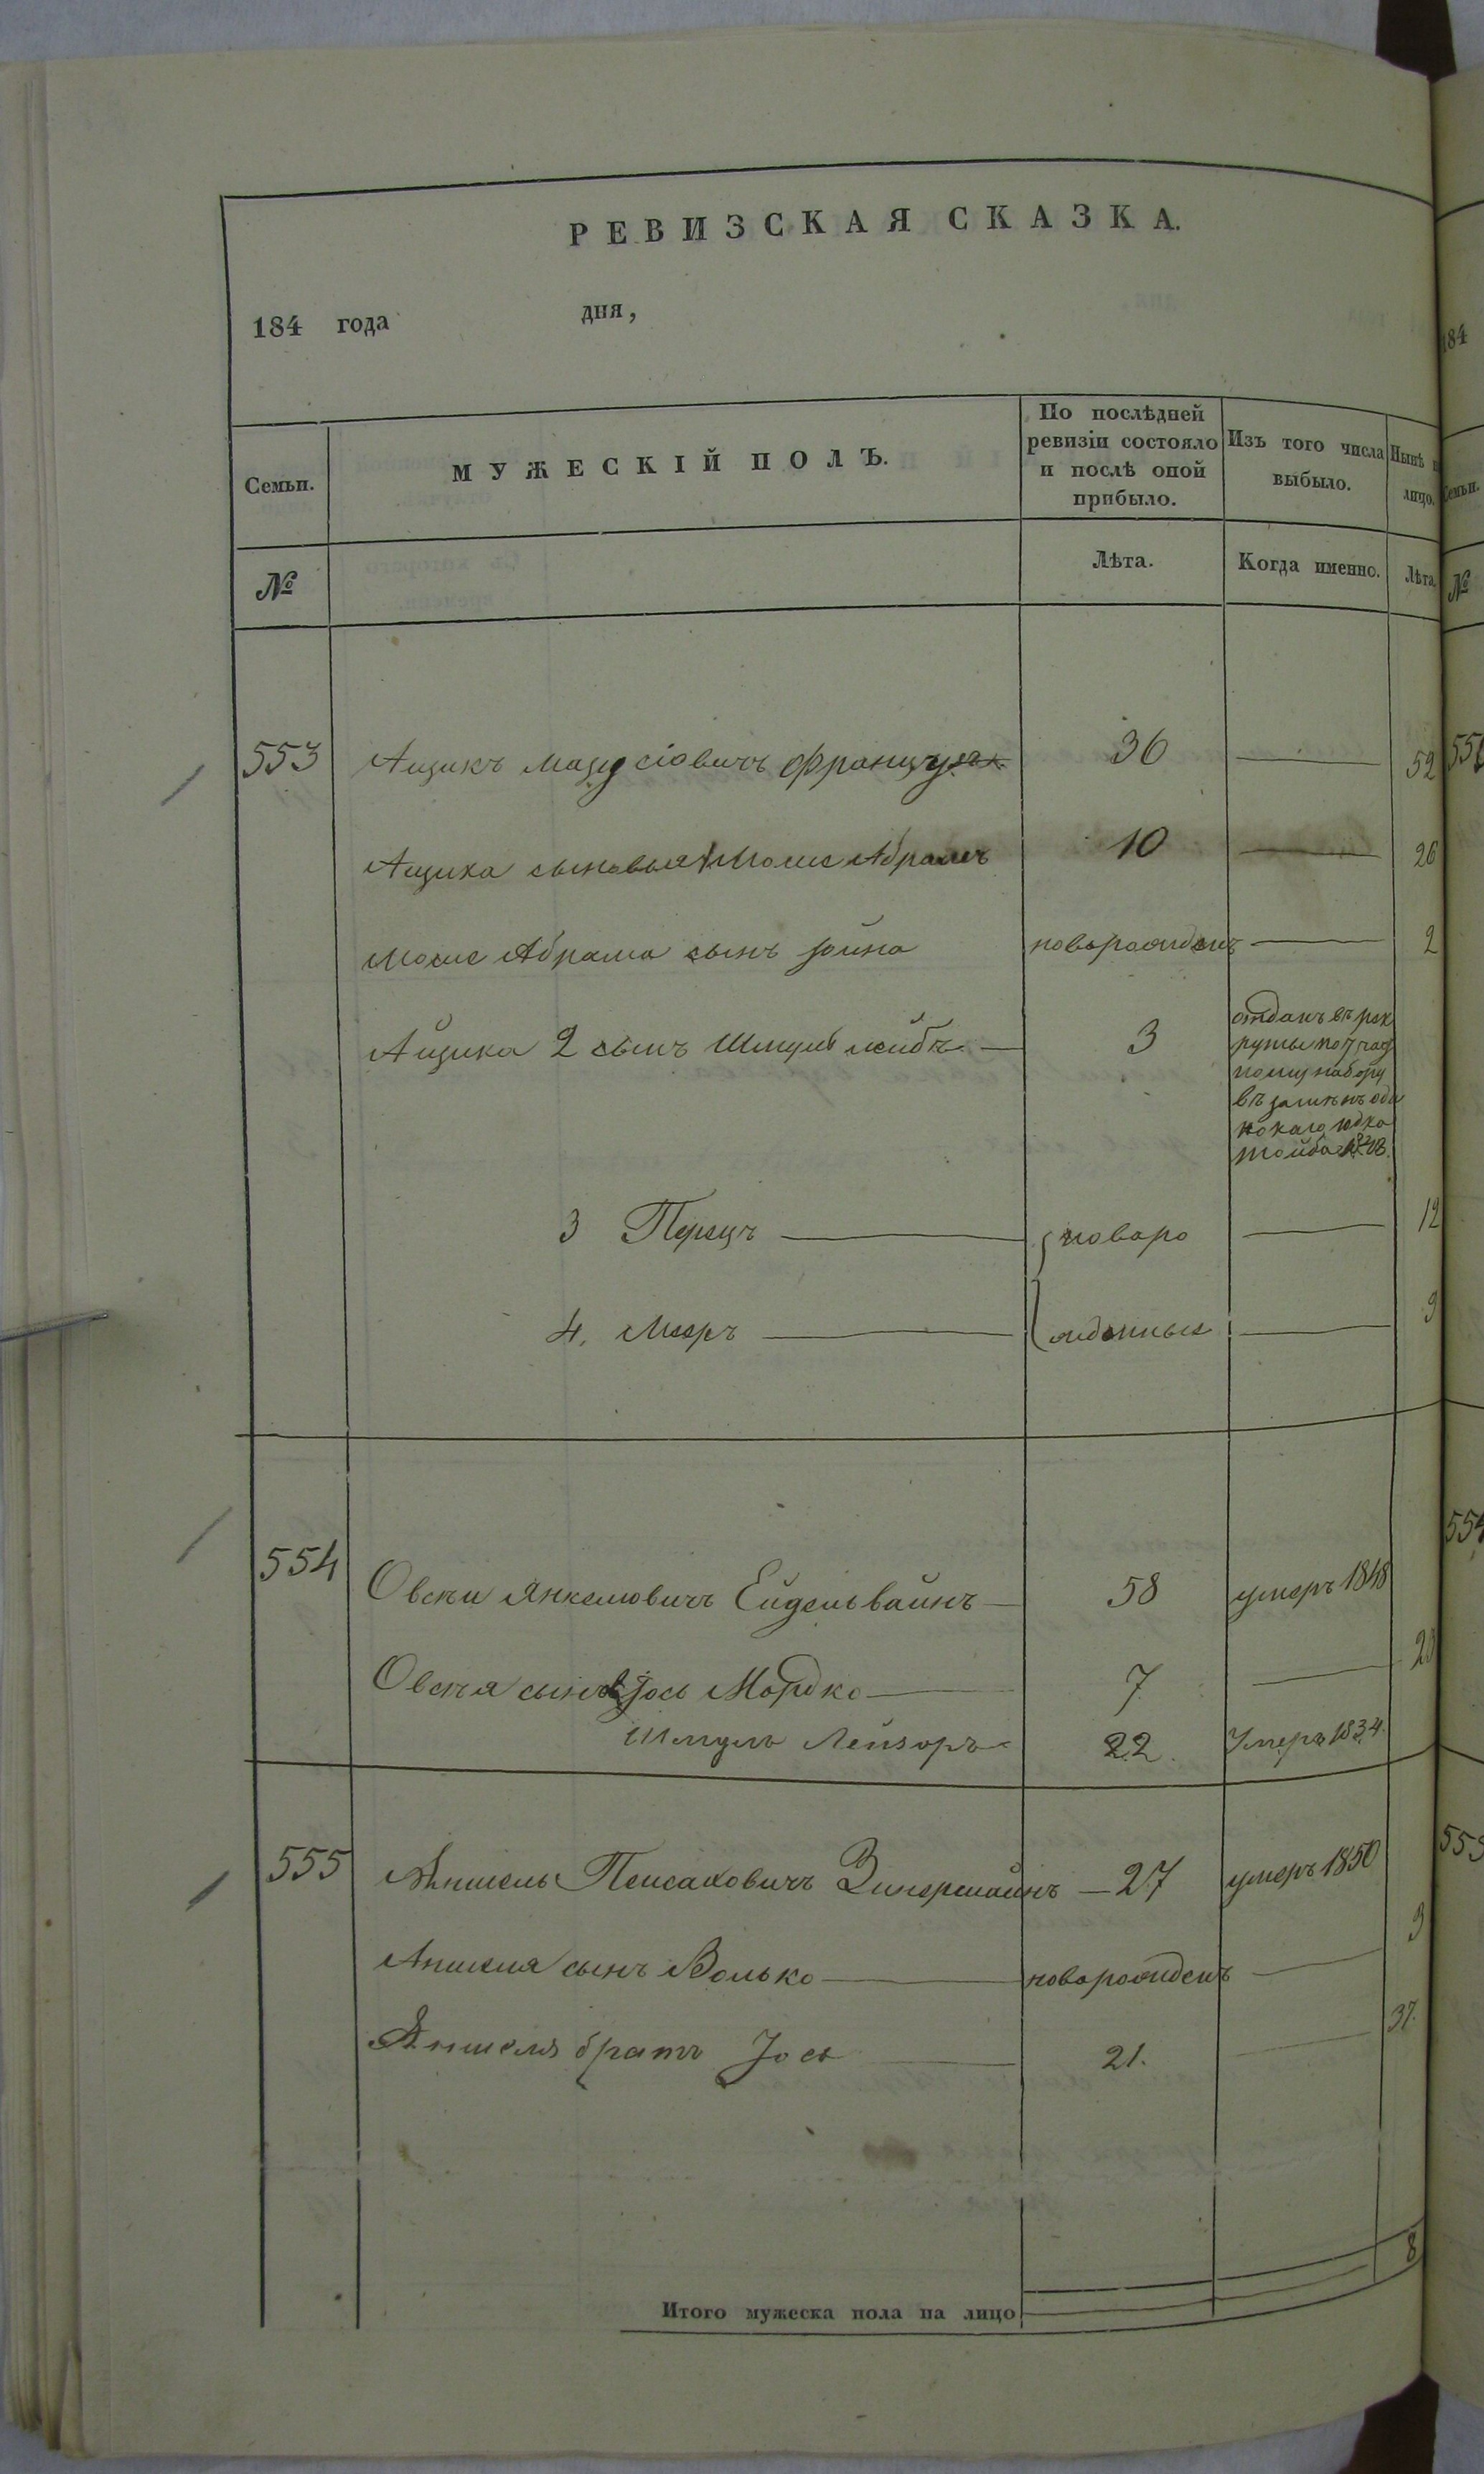 РЕВИЗСКАЯ СКАЗКА.
184 года дня,
Семьи. МУЖЕСКІЙ ПОЛЪ. По послѣдней ревизіи состояло и послѣ оной прибыло. Изъ того числа выбыло. Нынѣ
лицо.
№ Лѣта. Когда именно. Лѣта.
553 Аицикъ французъ 36 52
Аицика сыновья 1 Мошe Абрамъ 10 26
Мошe Абрама сынъ Іойна новорожденъ 2
Аицика 2 сынъ Шмуль лейбъ 3 отданъ въ рек
руты по 7 част
ному набору
въ
3 Перецъ новоро 12
4. Мееръ жденные 9
554 Овсѣи Янкелiовичъ Ейдельвайнъ 58 умеръ 1848
Овсѣя Іось Мордко 7 23
Шмуль Лейзоръ 22. Умеръ 1834.
555 Аншель Пейсаховичъ 27 умеръ 1850
Аншеля сынъ Волько новорожденъ 3
Аншеля братъ Іось 21. 37.
8
Итого мужеска пола на лицо
184
Семьи.
№
554
555